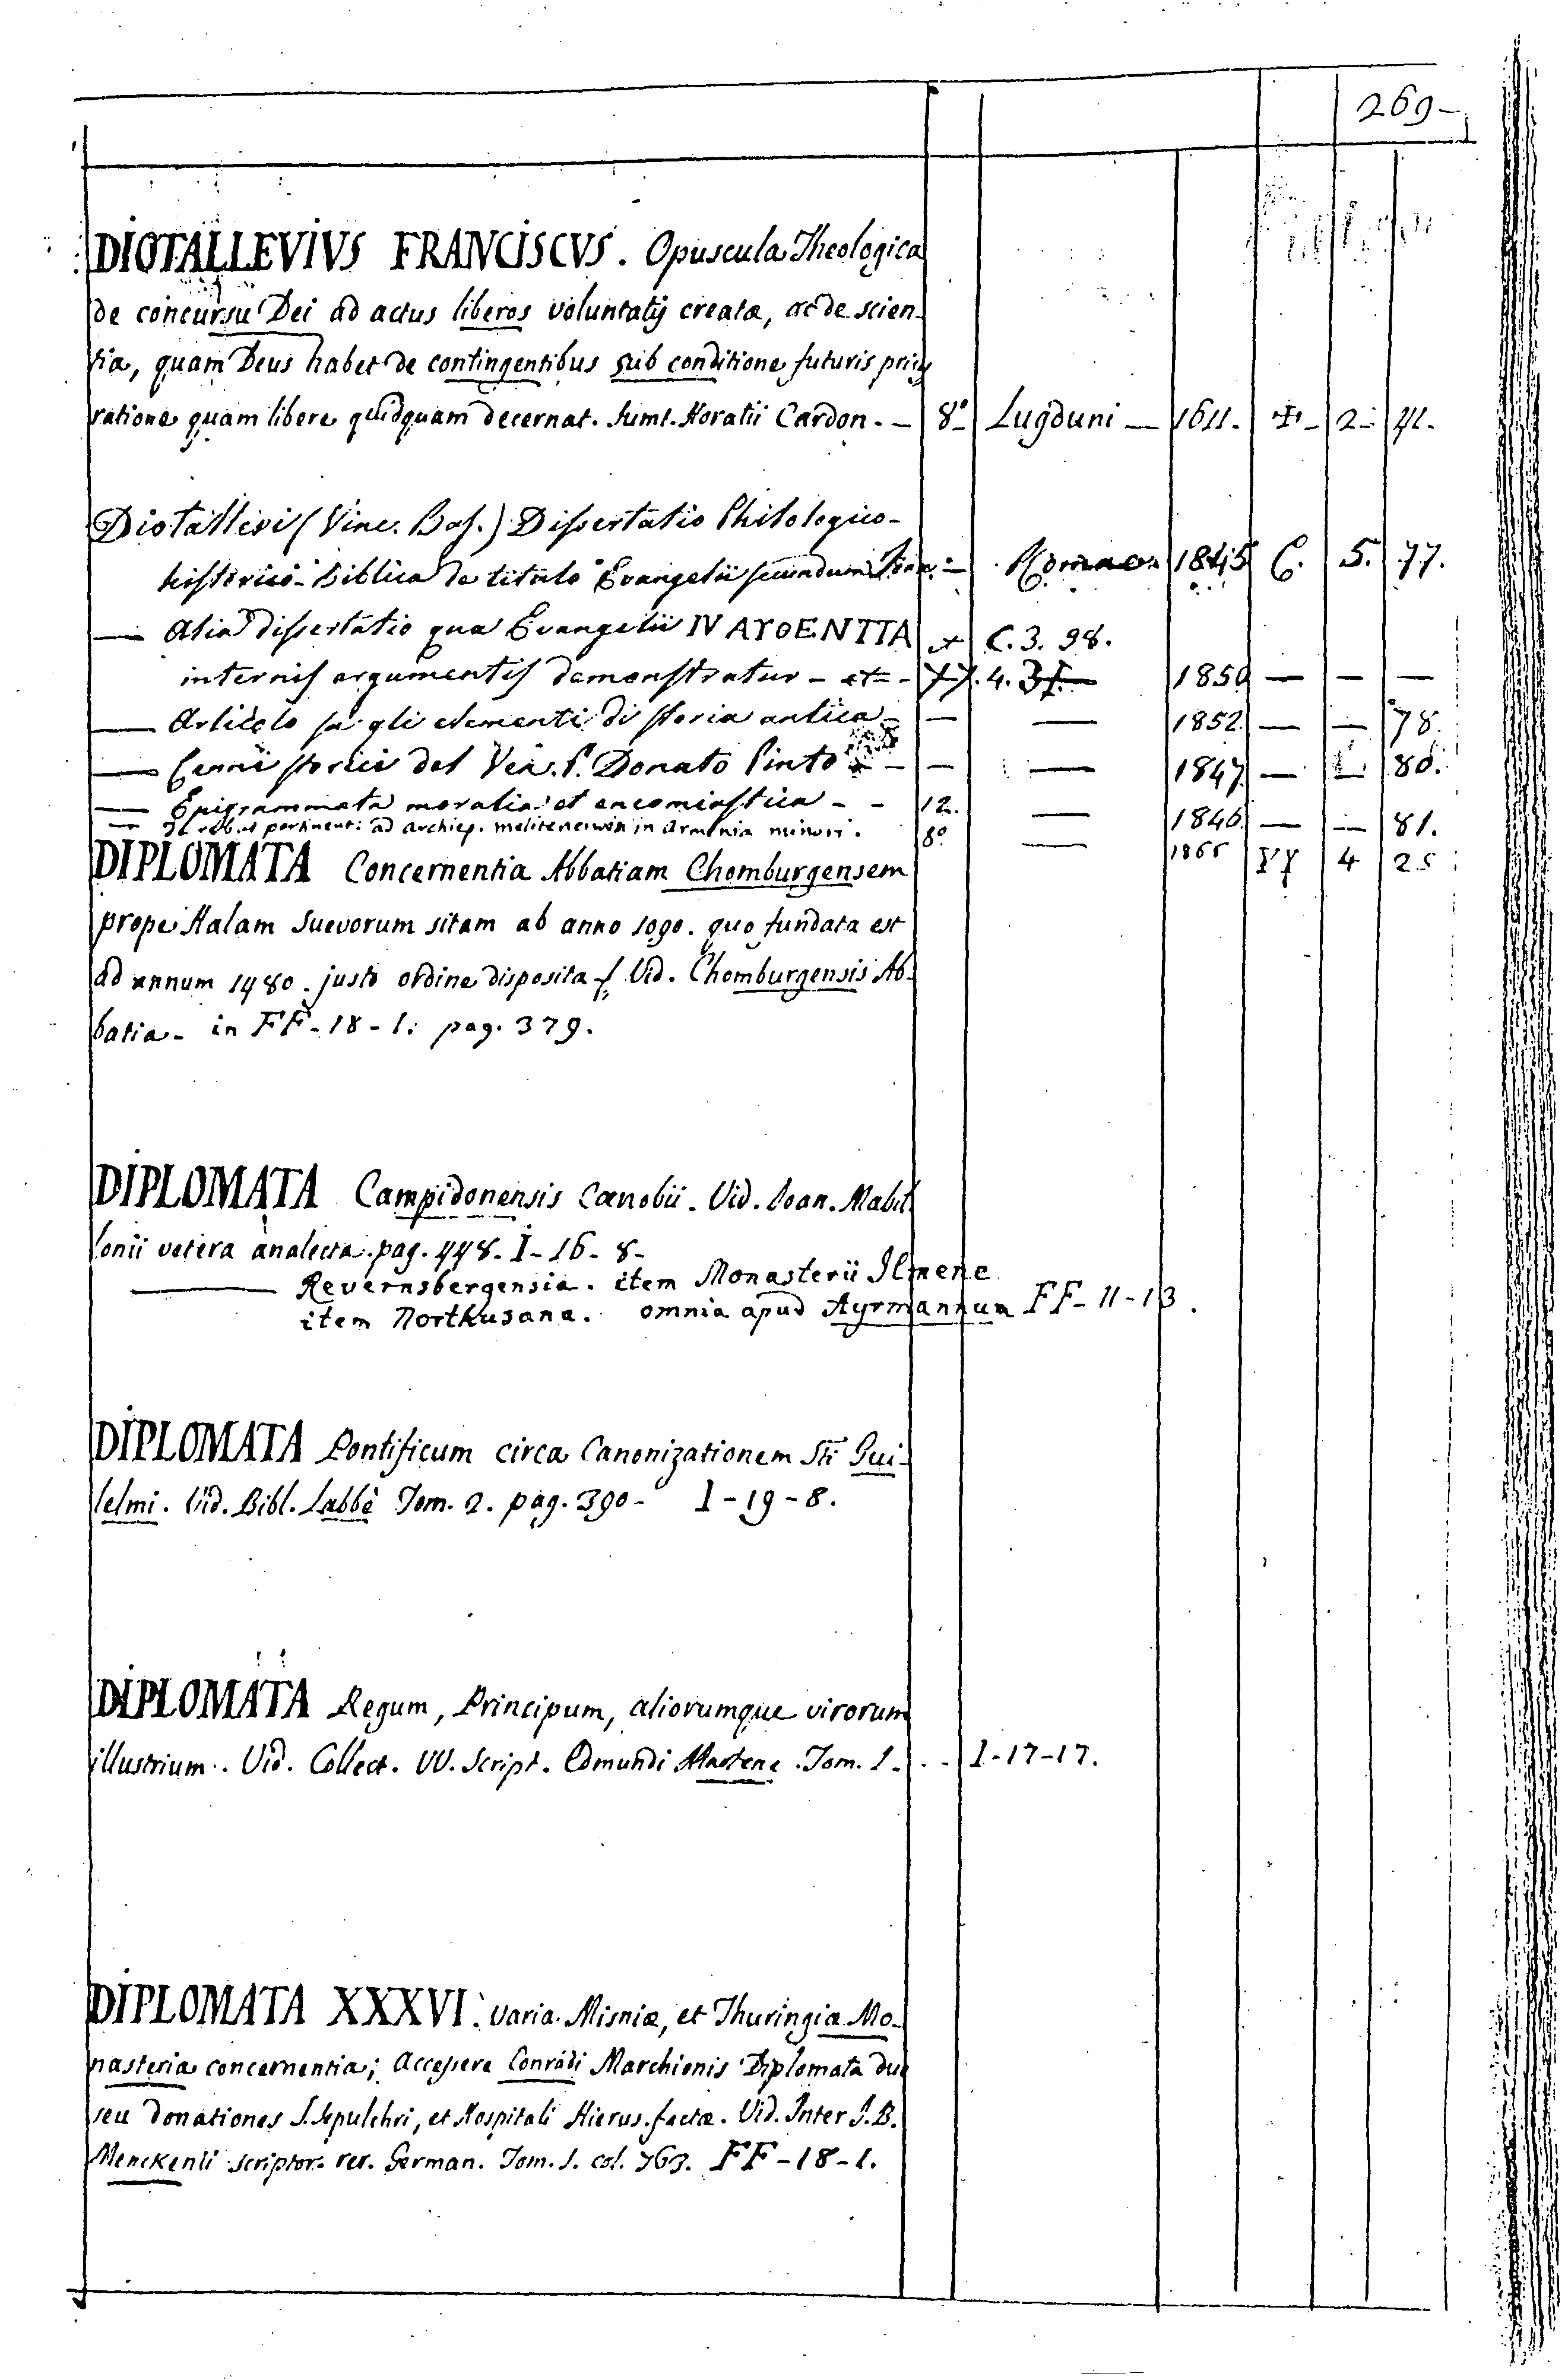 269-
DIOTALLEVIVS FRANCISCVS. Opuscula Theologica
de concursu Dei ad actus liberos voluntatis creatæ, ac de scien-
tia, quam Deus habet de contingentibus sub conditione futuris prius
ratione quam libere quidquam decernat. Sumt. Horatii Cardon. - 8º Lugduni - 1611. - 2 - 41.
Diotallevi (Vinc. Bas.) Dissertatio Philologico-
historico-Biblica de titulo Evangelii secundum - Romae 1845 C. 5. 77.
— Alia dissertatio qua Evangelii IV ΑΥΘΕΝΤΙΑ + C. 3. 98.
internis argumentis demonstratur - etc - 4. 1850 — — —
— Articolo su gli elementi di storia antica - — — 1852. — — 78.
— Cenni storici del Ven. P. Donato Pinto - — — 1847. — — 80.
— Epigrammata moralia et encomiastica - - 12. — 1846. — — 81.
— De rebus pertinent: ad archiep. in Armenia minori. 8º — 1866 YY 4 25
DIPLOMATA Concernentia Abbatiam Chomburgensem
prope Halam Suevorum sitam ab anno 1090. quo fundata est
ad annum 1480. justo ordine disposita. Vid. Chomburgensis Ab-
batia - in FF - 18 - 1: pag. 379.
DIPLOMATA Campidonensis Cœnobii. Vid. Ioan. Mabil
lonii vetera analecta. pag. 448. I - 16 - 8 -
— Revernsbergensia. item Monasterii Ilmene
item Northusana. omnia apud Ayrmannum FF - 11 - 13.
DIPLOMATA Pontificum circa Canonizationem Sti Gui-
lelmi. Vid. Bibl. Labbè Tom. 2. pag. 390 - I - 19 - 8.
DIPLOMATA Regum, Principum, aliorumque virorum
illustrium. Vid. Collect. VV. Script. Edmundi Martene. Tom. 1. - I - 17 - 17.
DIPLOMATA XXXVI. varia Misniæ, et Thuringiæ Mo-
nasteria concernentia; Accessere Conradi Marchionis Diplomata duo
seu donationes S. Sepulchri, et Hospitali Hierus. factæ. Vid. Inter J. B.
Menckenii scriptor. rer. German. Tom. 1. col. 763. FF - 18 - 1.